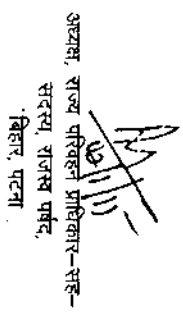 अध्यक्ष, राज्य परिवहन प्राधिकार-सह-
सदस्य, राजस्व पर्षद,
बिहार, पटना